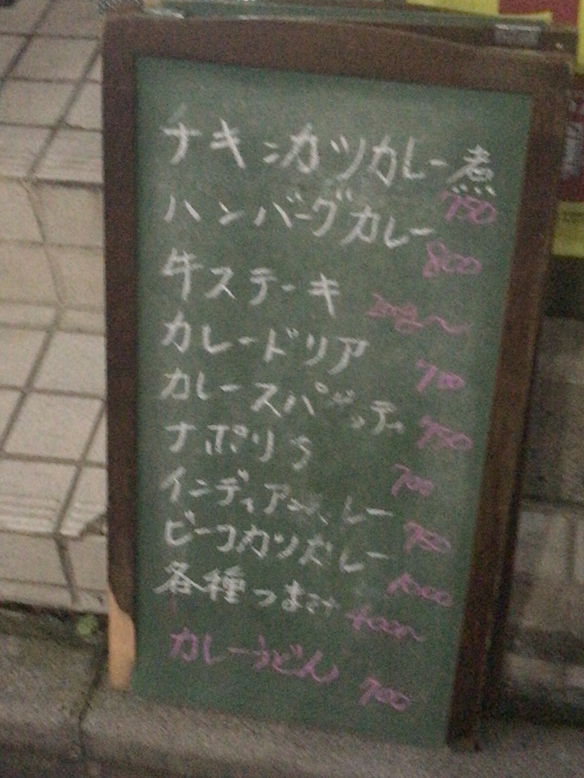 チキンカツカレー煮
750
ハンバーグカレー
800
牛ステーキ
200g〜
カレードリア
700
カレースパゲッティ
750
ナポリ
700
インディアンカレー
750
ビーフカツカレー
1000
各種つまみ
400〜
カレーうどん
700